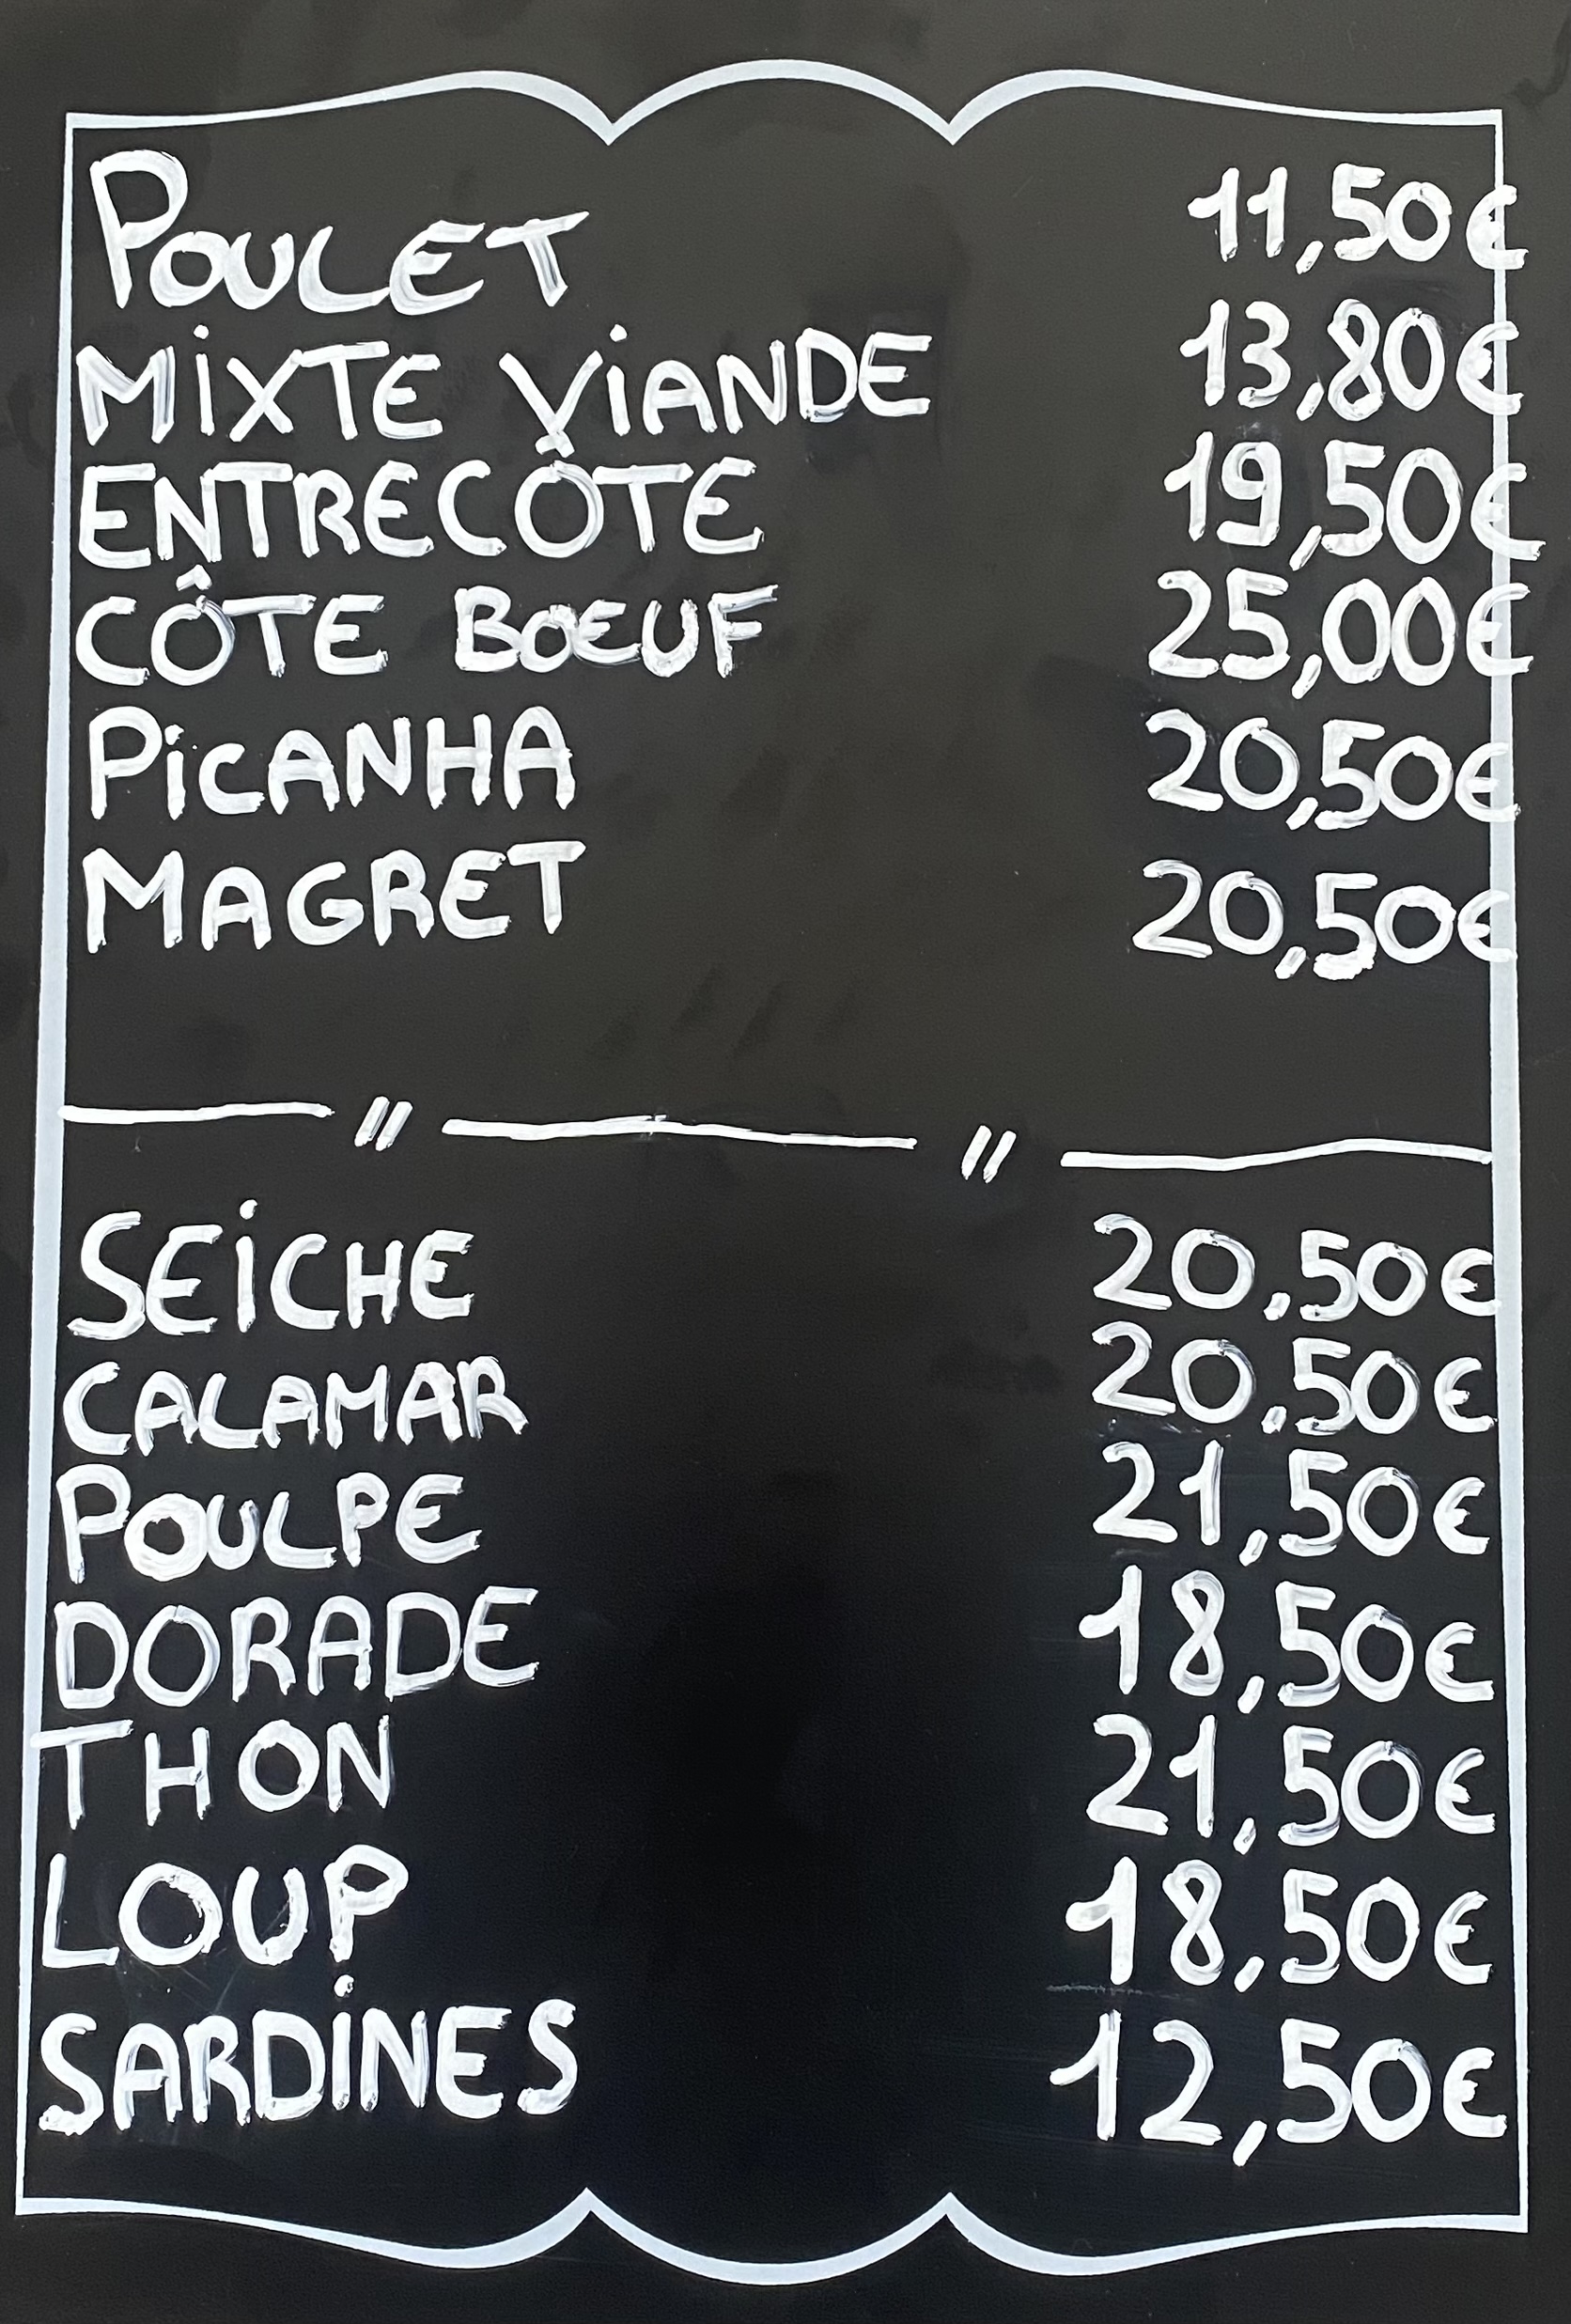 POULET 11,50€
MIXTE VIANDE 13,80€
ENTRECÔTE 19,50€
CÔTE BŒUF 25,00€
PICANHA 20,50€
MAGRET 20,50€
SEICHE 20,50€
CALAMAR 20,50€
POULPE 21,50€
DORADE 18,50€
THON 21,50€
LOUP 18,50€
SARDINES 12,50€